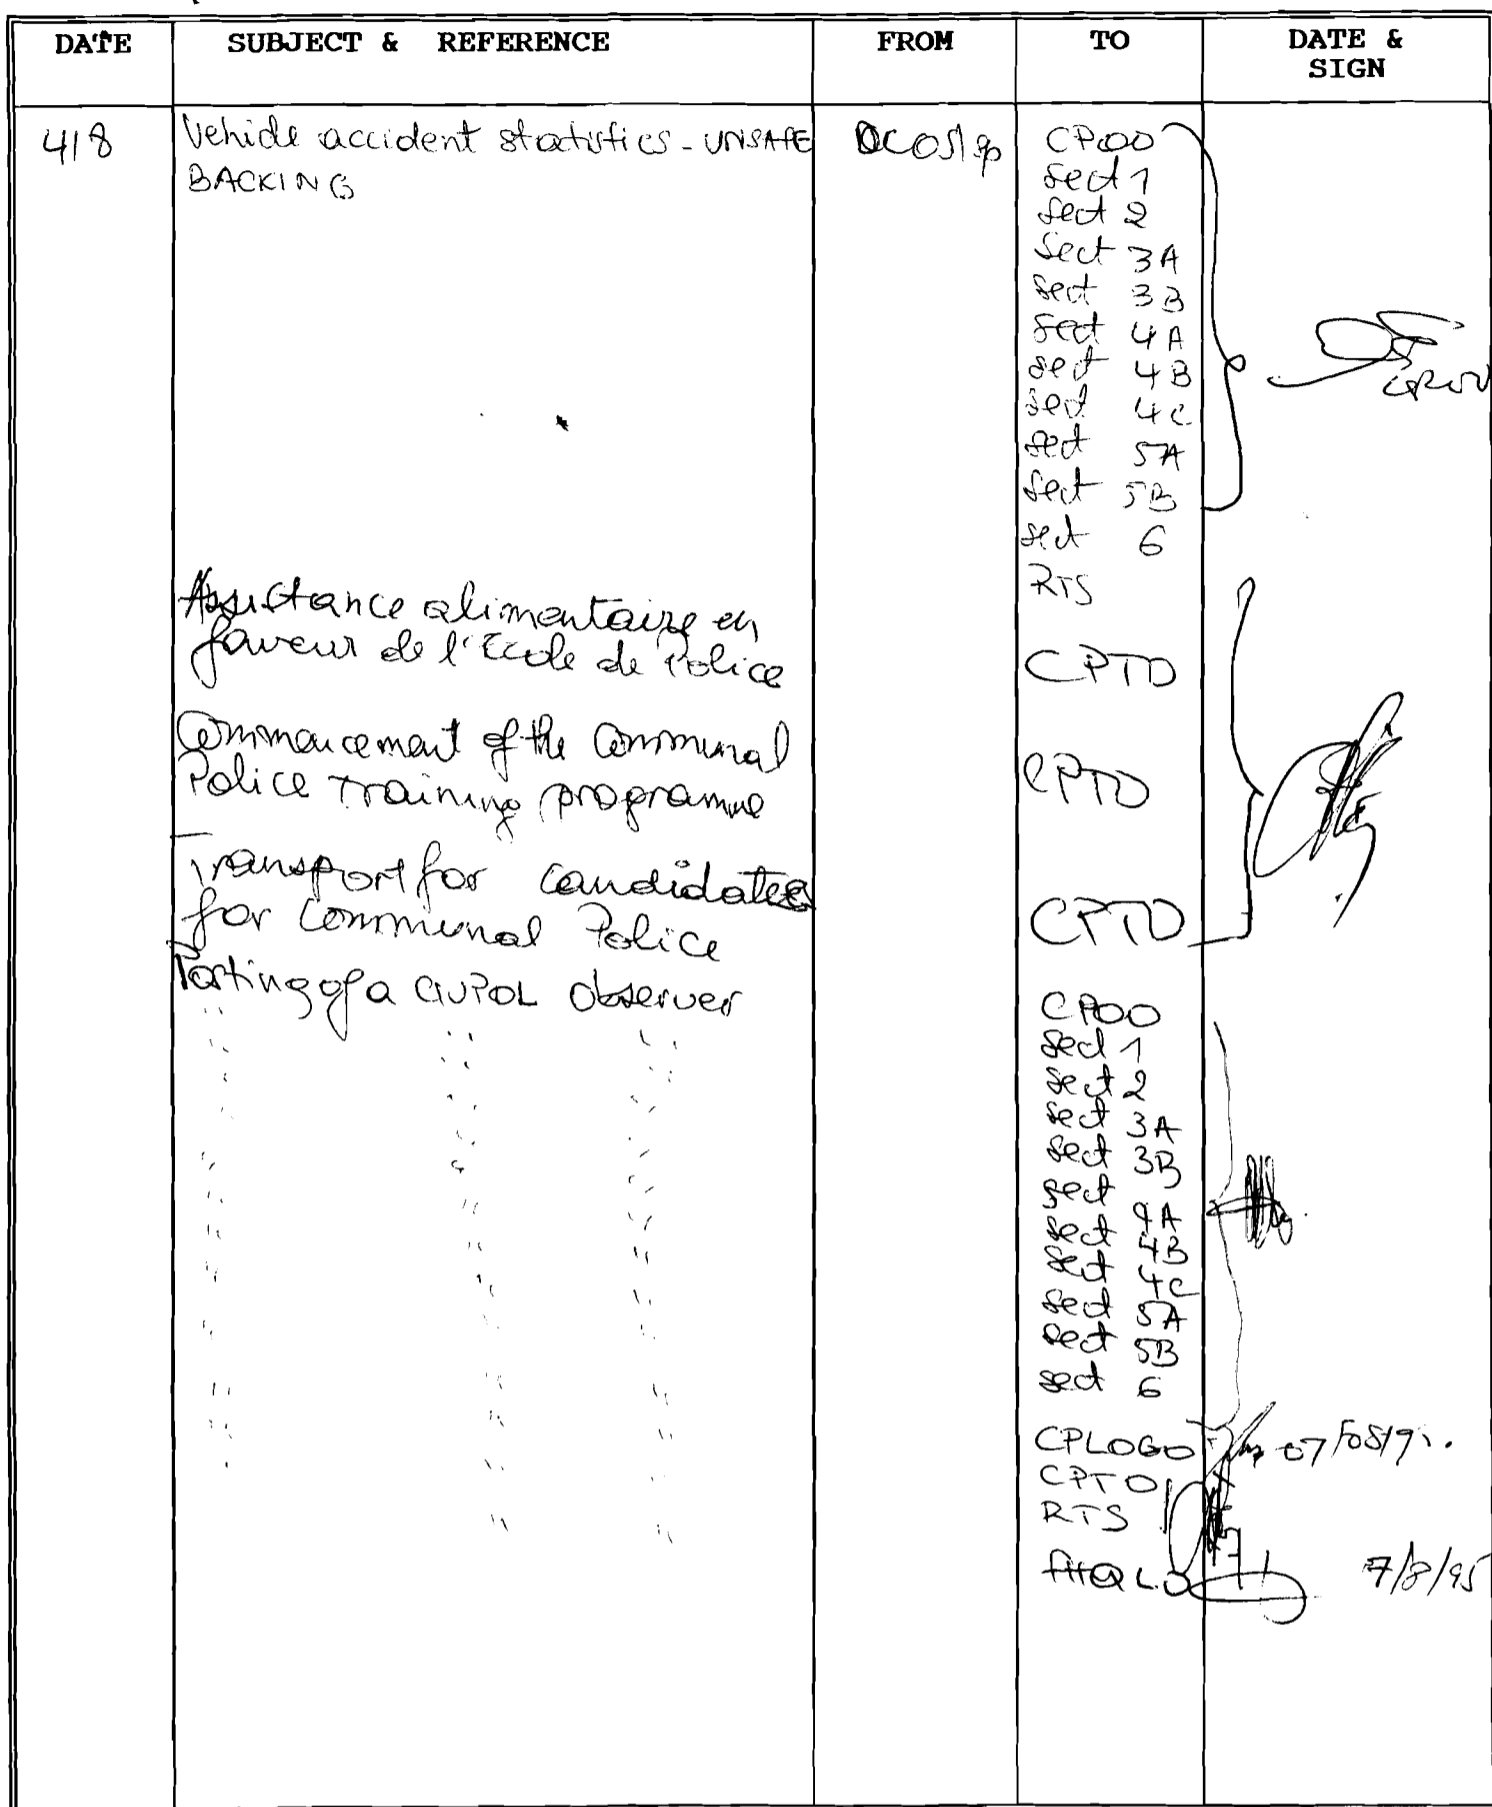 DATE SUBJECT & REFERENCE FROM TO DATE & SIGN
4/8 Vehicle accident statistics - UNSAFE DCOS/sp CPOO
BACKING sect 1
sect 2
sect 3A
sect 3B
sect 4A
sect 4B
sect 4C
sect 5A
sect 5B
sect 6
RTS
Assistance alimentaire en
faveur de l'Ecole de Police CPTO
Commencement of the Communal
Police Training programme CPTO
Transport for candidates
for Communal Police CPTO
Posting of a CIVPOL observer CPOO
" " " sect 1
" " " sect 2
" " " sect 3A
" " " sect 3B
" " " sect 4A
" " " sect 4B
" " " sect 4C
" " " sect 5A
" " " sect 5B
" " " sect 6
" " " CPLOGO 07/08/95.
" " " CPTO
" " RTS
FHQLO 7/8/95